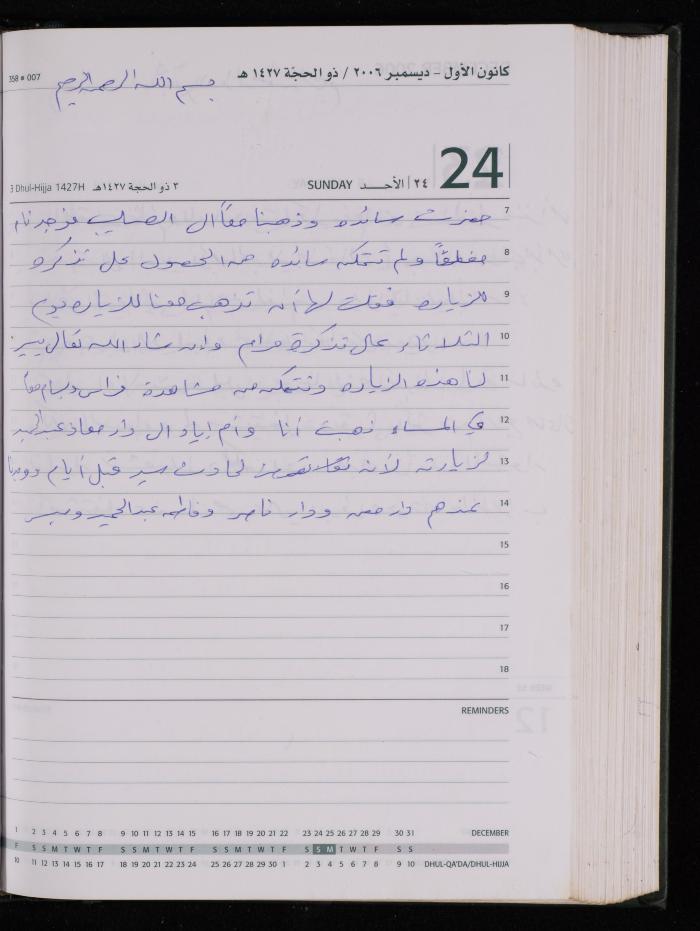 كانون الأول - ديسمبر ٢٠٠٦ / ذو الحجة ١٤٢٧ هـ
358 • 007
بسم الله الرحمن الرحيم
24
٢٤ | الأحـــد SUNDAY
٣ ذو الحجة ١٤٢٧هـ 3 Dhul-Hijja 1427H
7 حضرت سائده وذهبنا معاً ال الصليب فوجدناه
8 مغلقاً ولم تتمكن سائده من الحصول على تذكره
9 للزياره فقلت لها أن تذهب معنا للزياره يوم
10 الثلاثاء على تذكرة مرام وإن شاء الله تعالى ييسر
11 لنا هذه الزياره ونتمكن من مشاهدة فراس وبسام معاً
12 في المساء ذهبت أنا وأم إياد ال دار معاذ
13 لزيارته لأنه تعرض لحادث سير قبل أيام ووجدنا
14 عندهم دار معن ودار ناصر وفاطمه عبدالحميد
15
16
17
18
REMINDERS
1 2 3 4 5 6 7 8 9 10 11 12 13 14 15 16 17 18 19 20 21 22 23 24 25 26 27 28 29 30 31 DECEMBER
F S S M T W T F S S M T W T F S S M T W T F S S M T W T F S S
10 11 12 13 14 15 16 17 18 19 20 21 22 23 24 25 26 27 28 29 30 1 2 3 4 5 6 7 8 9 10 DHUL-QA'DA/DHUL-HIJJA